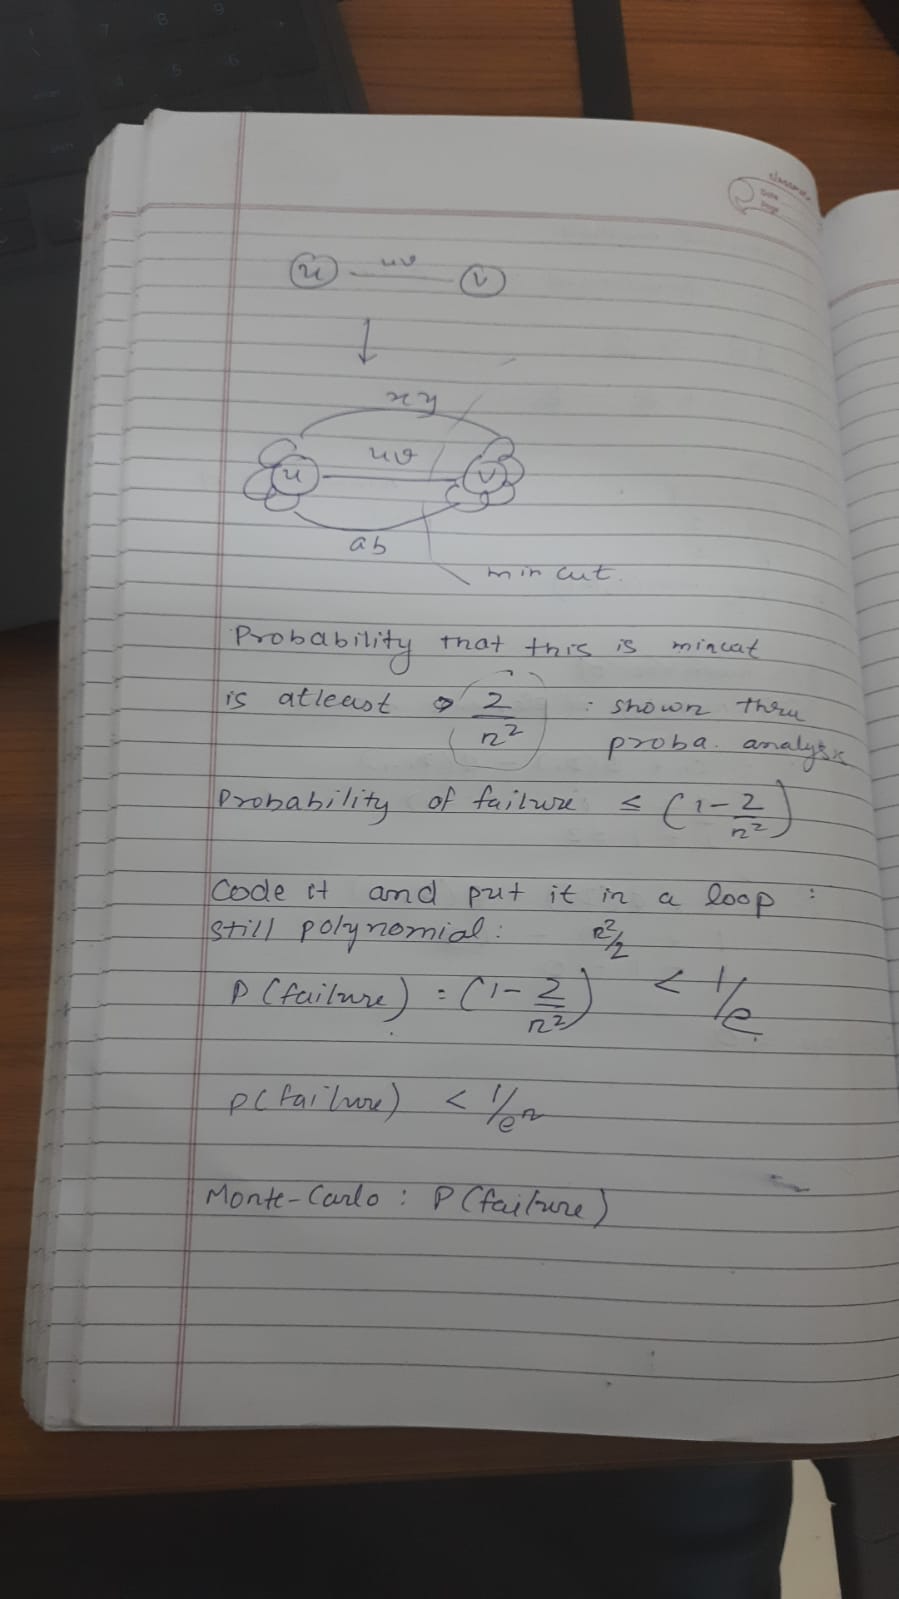 classmate
Date
Page
u uv v
↓
xy
u uv v
ab
min cut.
Probability that this is mincut
is atleast → 2/n² : shown thru
proba. analysis
Probability of failure ≤ (1 - 2/n²)
Code it and put it in a loop :
still polynomial : n²/2
P(failure) = (1 - 2/n²) < 1/e.
P(failure) < 1/eⁿ
Monte-Carlo : P(failure)